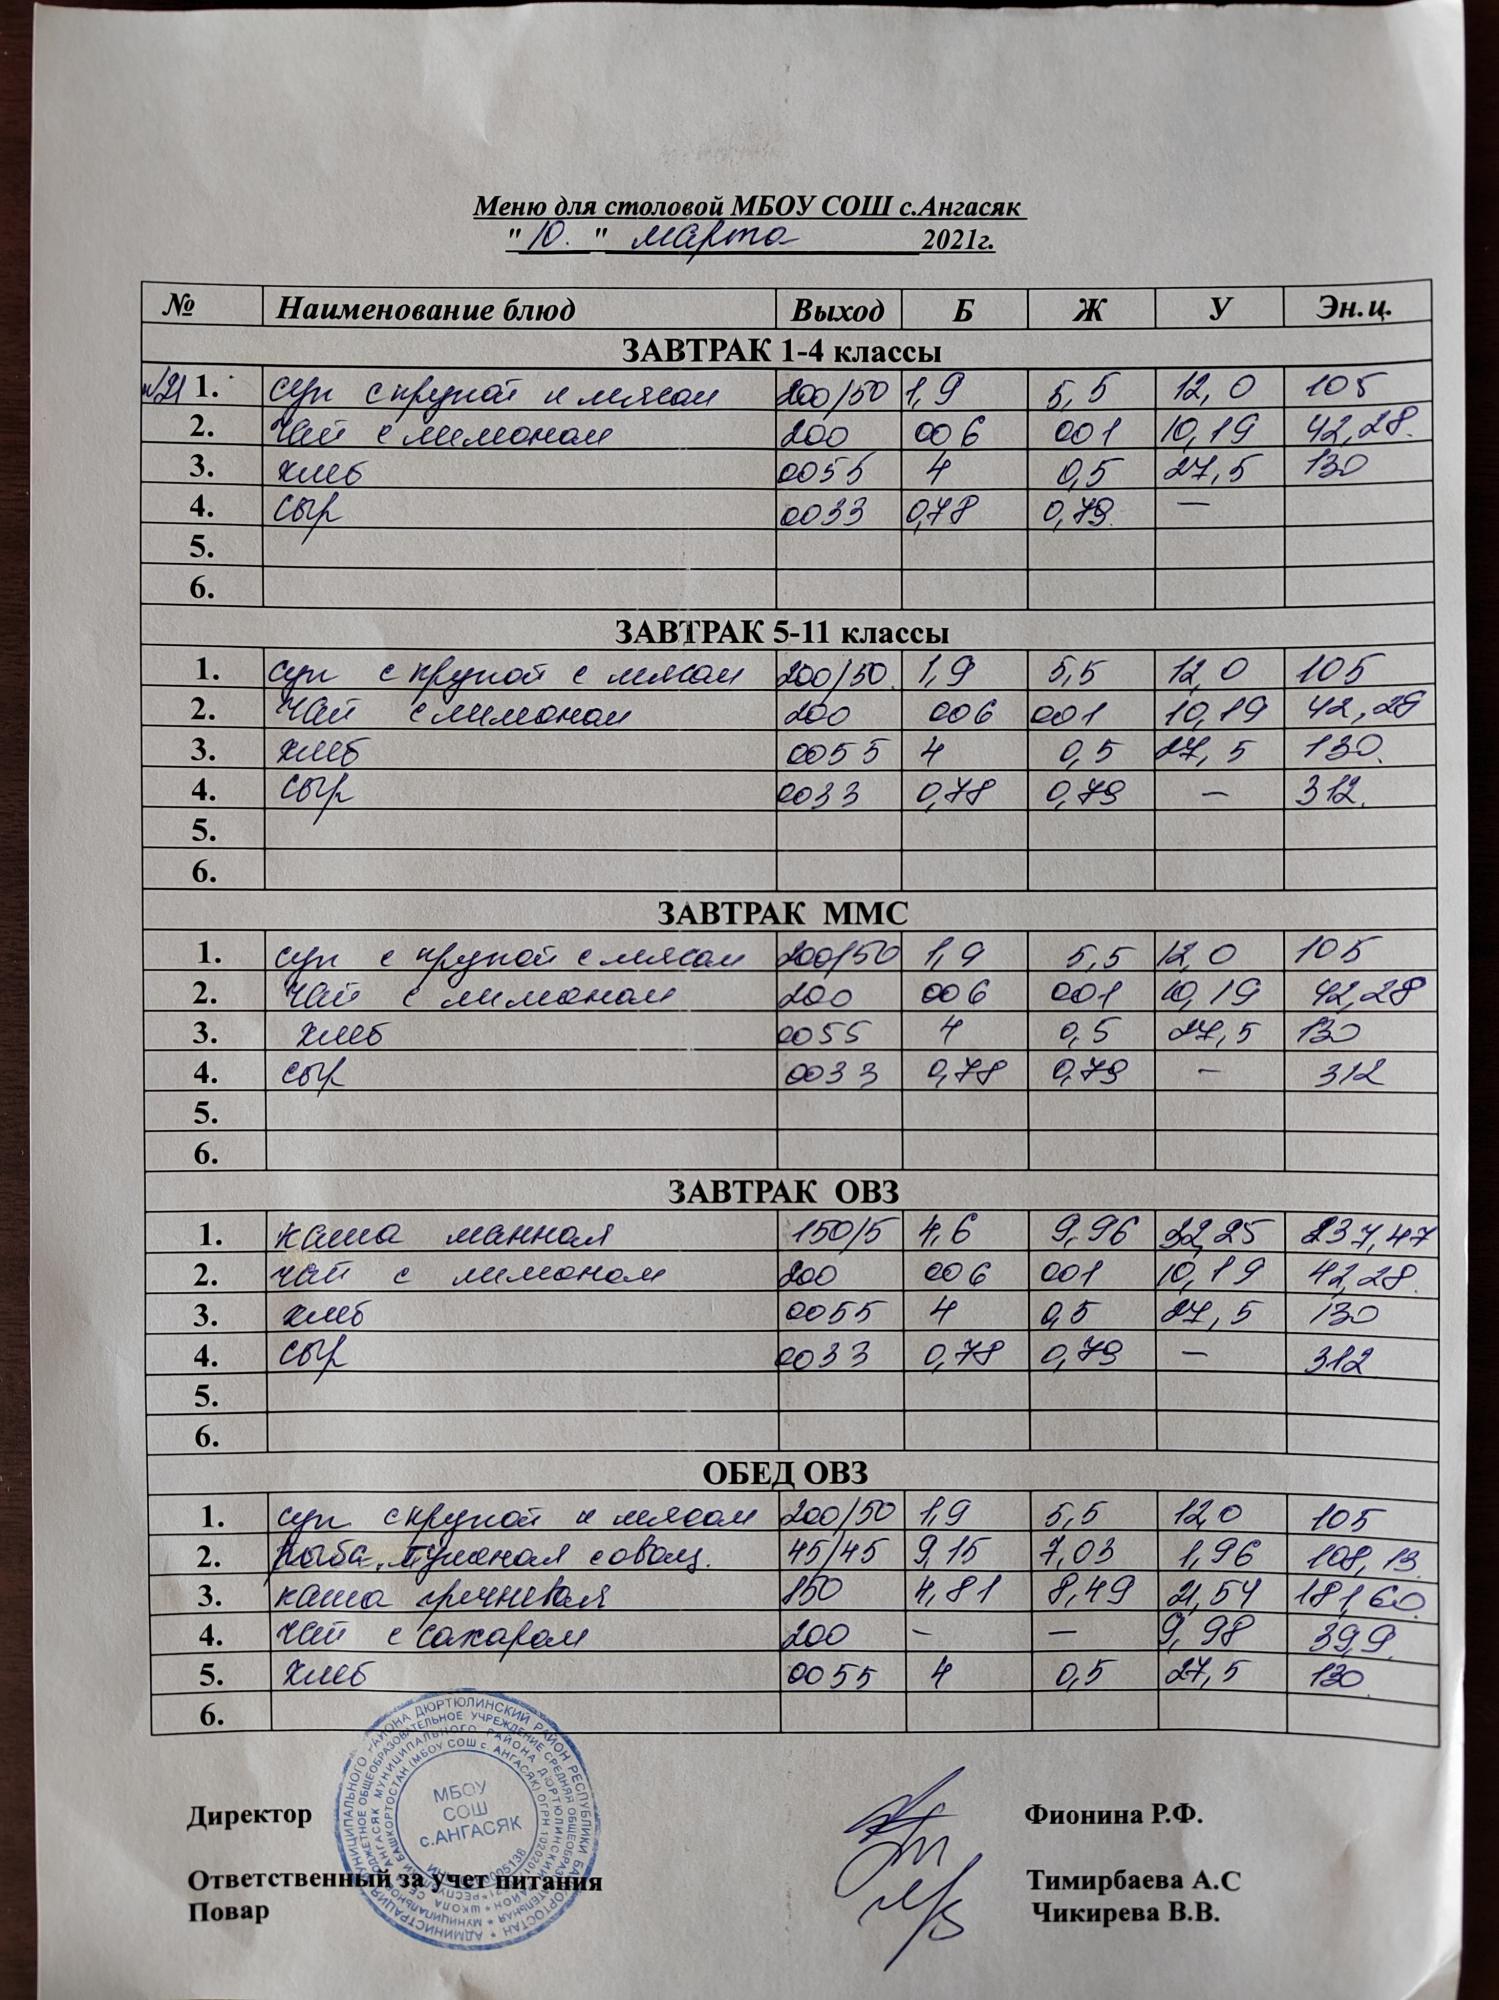 Меню для столовой МБОУ СОШ с.Ангасяк
"10." марта 2021г.
№ Наименование блюд Выход Б Ж У Эн.ц.
ЗАВТРАК 1-4 классы
1. суп с крупой и мясом 200/50 1,9 5,5 12,0 105
2. чай с лимоном 200 006 001 10,19 42,28.
3. хлеб 0055 4 0,5 27,5 130
4. сыр 0033 0,78 0,79 —
5.
6.
ЗАВТРАК 5-11 классы
1. суп с крупой с мясом 200/50. 1,9 5,5 12,0 105
2. чай с лимоном 200 006 001 10,19 42,28
3. хлеб 0055 4 0,5 27,5 130.
4. сыр 0033 0,78 0,79 — 312.
5.
6.
ЗАВТРАК ММС
1. суп с крупой с мясом 200/50 1,9 5,5 12,0 105
2. чай с лимоном 200 006 001 10,19 42,28
3. хлеб 0055 4 0,5 27,5 130
4. сыр 0033 0,78 0,79 — 312
5.
6.
ЗАВТРАК ОВЗ
1. каша манная 150/5 4,6 9,96 32,25 237,47
2. чай с лимоном 200 006 001 10,19 42,28.
3. хлеб 0055 4 0,5 27,5 130
4. сыр 0033 0,78 0,79 — 312
5.
6.
ОБЕД ОВЗ
1. суп с крупой и мясом 200/50 1,9 5,5 12,0 105
2. рыба, тушоная с овощ. 45/45 9,15 7,03 1,96 108,13
3. каша гречневая 150 4,81 8,49 21,54 181,60.
4. чай с сахаром 200 — — 9,98 39,9.
5. хлеб 0055 4 0,5 27,5 130
6.
МБОУ
СОШ
с.АНГАСЯК
Директор Фионина Р.Ф.
Ответственный за учет питания Тимирбаева А.С
Повар Чикирева В.В.